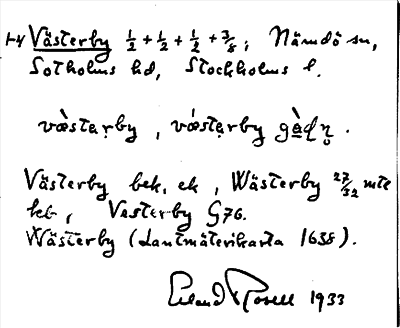 1-4 Västerby 1/2 + 1/2 + 1/2 + 3/8; Nämdö sn,
Sotholms hd, Stockholms l.
væ̀stạrby, vǽstạrby gà̱dn̥.
Västerby bek, ek, Wästerby 27/32 mtl
keb, Vesterby G76.
Wästerby (Lantmäterikarta 1638).
Erland Rosell 1933